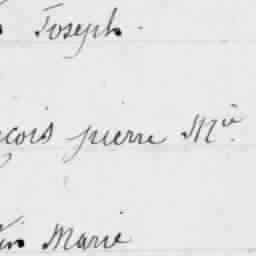 Joseph.
çois pierre M.ie
Marie